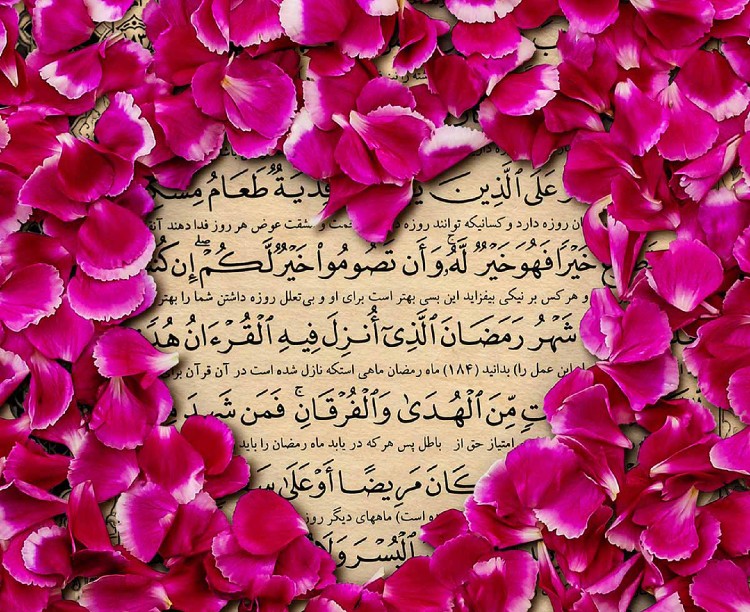 عَلَى ٱلَّذِينَ فِدْيَةٌ طَعَامُ
روزه دارد و کسانیکه توانند روزه و مشقت عوض هر روز فدا دهند
خَيْرًا فَهُوَ خَيْرٌ لَّهُۥ وَأَن تَصُومُوا۟ خَيْرٌ لَّكُمْ ۖ إِن
و هر کس بر نیکی بیفزاید این بسی بهتر است برای او و بی‌تعلل روزه داشتن شما را بهتر
شَهْرُ رَمَضَانَ ٱلَّذِىٓ أُنزِلَ فِيهِ ٱلْقُرْءَانُ
این عمل را) بدانید (۱۸۴) ماه رمضان ماهی استکه نازل شده است در آن قرآن
مِّنَ ٱلْهُدَىٰ وَٱلْفُرْقَانِ ۚ فَمَن شَهِدَ
امتیاز حق از باطل پس هر که در یابد ماه رمضان را باید
كَانَ مَرِيضًا أَوْ عَلَىٰ
است) ماههای دیگر
ٱلْيُسْرَ وَلَا